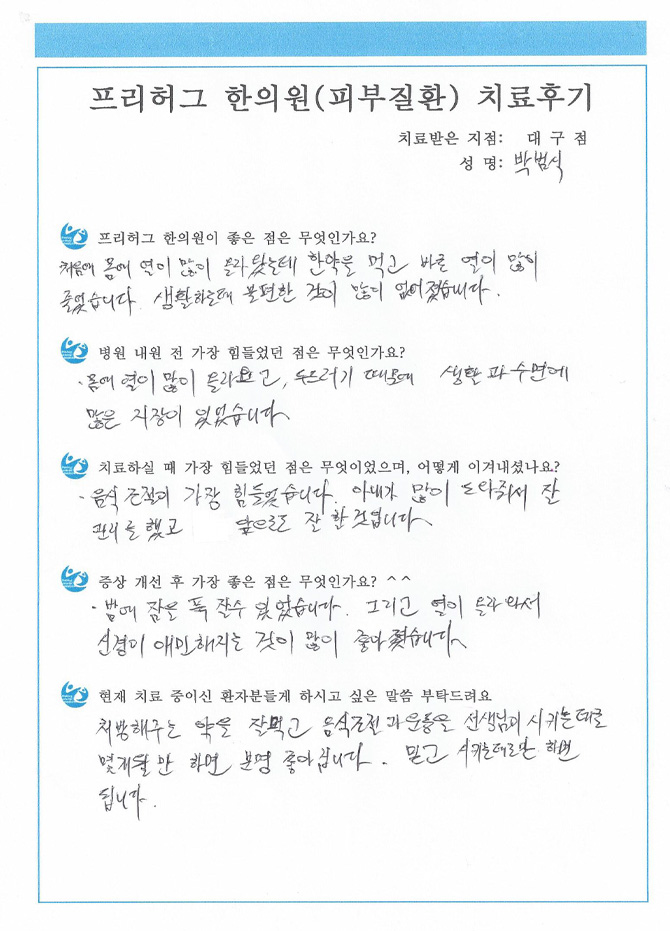 프리허그 한의원(피부질환) 치료후기
치료받은 지점: 대구점
성 명: 박범식
프리허그 한의원이 좋은 점은 무엇인가요?
처음에 몸에 열이 많이 올라왔는데 한약을 먹고 바로 열이 많이
줄었습니다. 생활하는데 불편한 것이 많이 없어졌습니다.
병원 내원 전 가장 힘들었던 점은 무엇인가요?
·몸에 열이 많이 올라오고, 두드러기 때문에 생활과 수면에
많은 지장이 있었습니다.
치료하실 때 가장 힘들었던 점은 무엇이었으며, 어떻게 이겨내셨나요?
·음식조절이 가장 힘들었습니다. 아내가 많이 도와줘서 잘
관리를 했고 앞으로도 잘 할것입니다.
증상 개선 후 가장 좋은 점은 무엇인가요? ^^
·밤에 잠을 푹 잘수 있었습니다. 그리고 열이 올라와서
신경이 애민해지는 것이 많이 좋아졌습니다.
현재 치료 중이신 환자분들게 하시고 싶은 말씀 부탁드려요
처방해주는 약을 잘먹고 음식조절과 운동을 선생님이 시키는데로
몇개월만 하면 분명 좋아집니다. 믿고 시키는데로만 하면
됩니다.